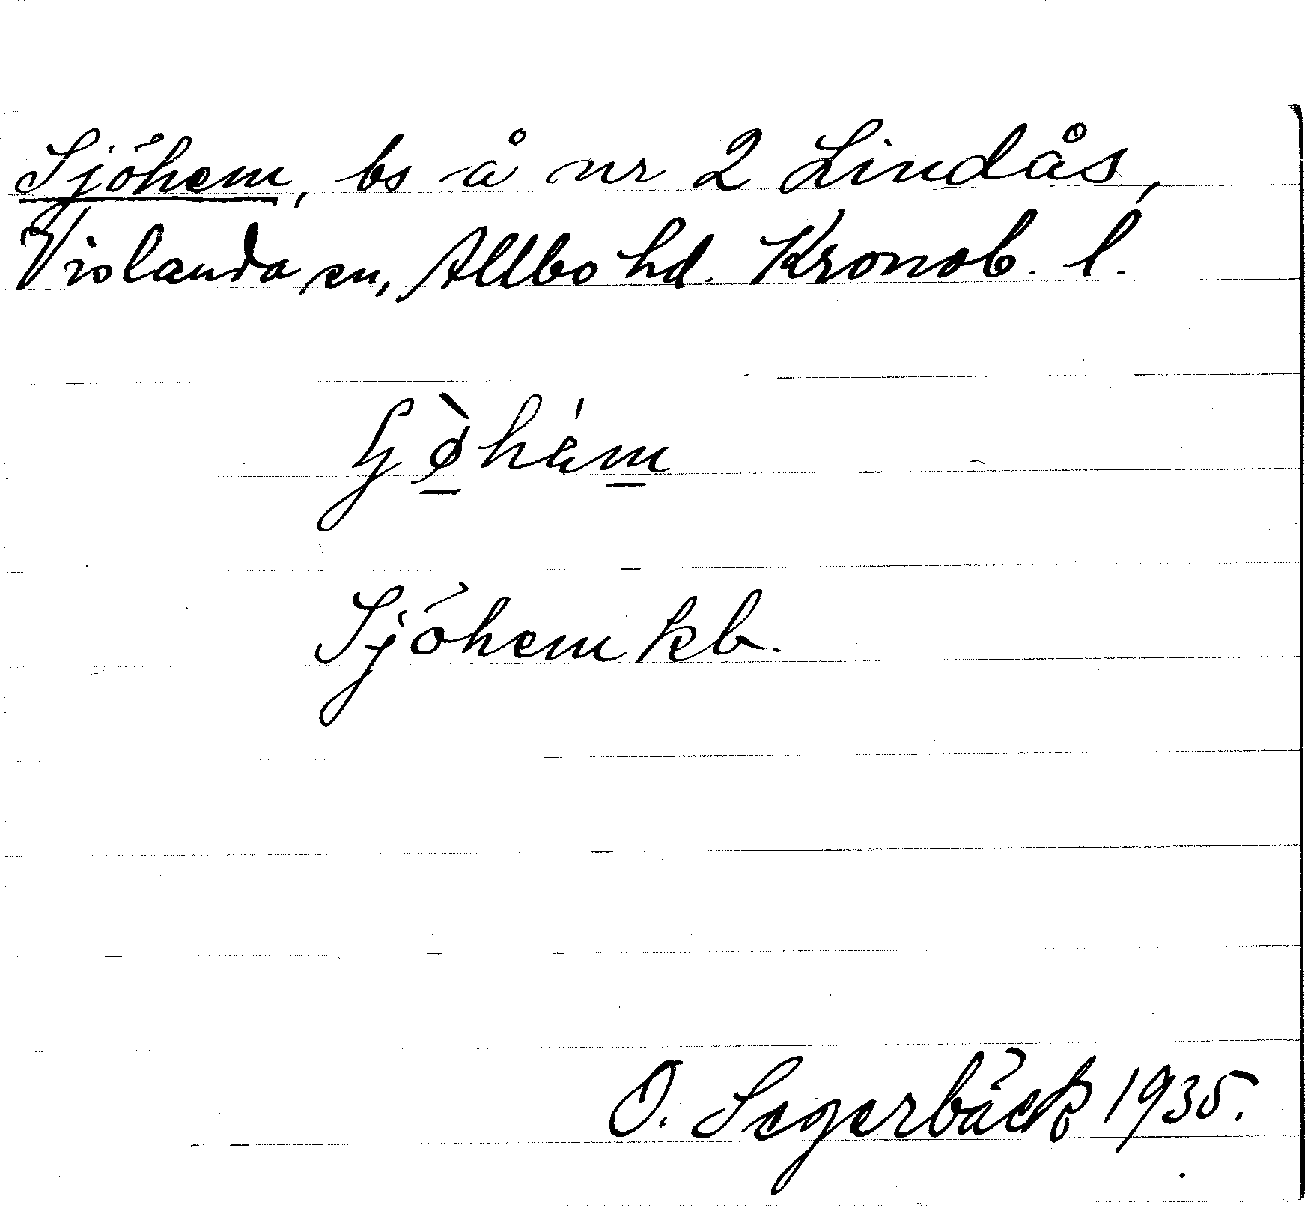 Sjöhem, bs å nr 2 Lindås,
Vislanda sn, Allbo hd. Kronob. l.
Sjöhem kb.
O. Segerbäck 1935.